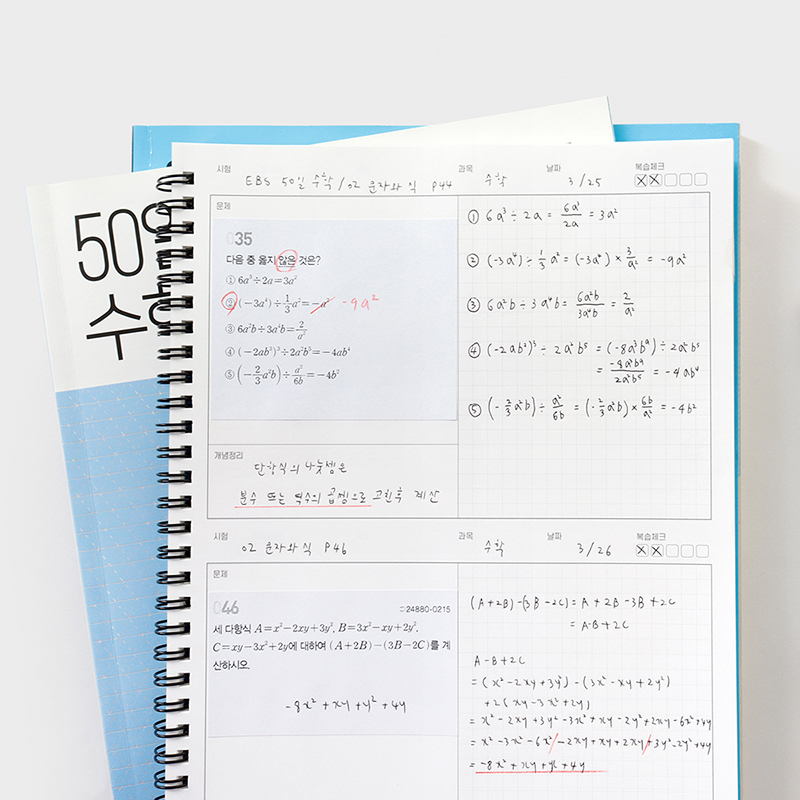 50일
수학
시험 EBS 50일 수학 / 02 문자와 식 P44 과목 수학 날짜 3/25 복습체크
문제
035
다음 중 옳지 않은 것은?
① 6a³÷2a=3a²
② (−3a⁴)÷1/3a²=−a² -9a²
③ 6a²b÷3a⁴b=2/a²
④ (−2ab³)³÷2a²b⁵=−4ab⁴
⑤ (−2/3a²b)÷a²/6b=−4b²
① 6a³ ÷ 2a = 6a³/2a = 3a²
② (-3a⁴) ÷ 1/3 a² = (-3a⁴) × 3/a² = -9a²
③ 6a²b ÷ 3a⁴b = 6a²b/3a⁴b = 2/a²
④ (-2ab³)³ ÷ 2a²b⁵ = (-8a³b⁹) ÷ 2a²b⁵
= -8a³b⁹/2a²b⁵ = -4ab⁴
⑤ (-2/3a²b) ÷ a²/6b = (-2/3a²b) × 6b/a² = -4b²
개념정리
단항식의 나눗셈은
분수 또는 역수의 곱셈으로 고친후 계산
시험 02 문자와 식 P46 과목 수학 날짜 3/26 복습체크
문제
046 24880-0215
세 다항식 A=x²−2xy+3y², B=3x²−xy+2y²,
C=xy−3x²+2y에 대하여 (A+2B)−(3B−2C)를 계
산하시오.
-8x² + xy + y² + 4y
(A+2B)-(3B-2C) = A + 2B - 3B + 2C
= A-B+2C
A-B+2C
= (x² - 2xy + 3y²) - (3x² - xy + 2y²)
+ 2(xy - 3x² + 2y)
= x² - 2xy + 3y² - 3x² + xy - 2y² + 2xy - 6x² + 4y
= x² - 3x² - 6x² / - 2xy + xy + 2xy / + 3y² - 2y² + 4y
= -8x² + xy + y² + 4y